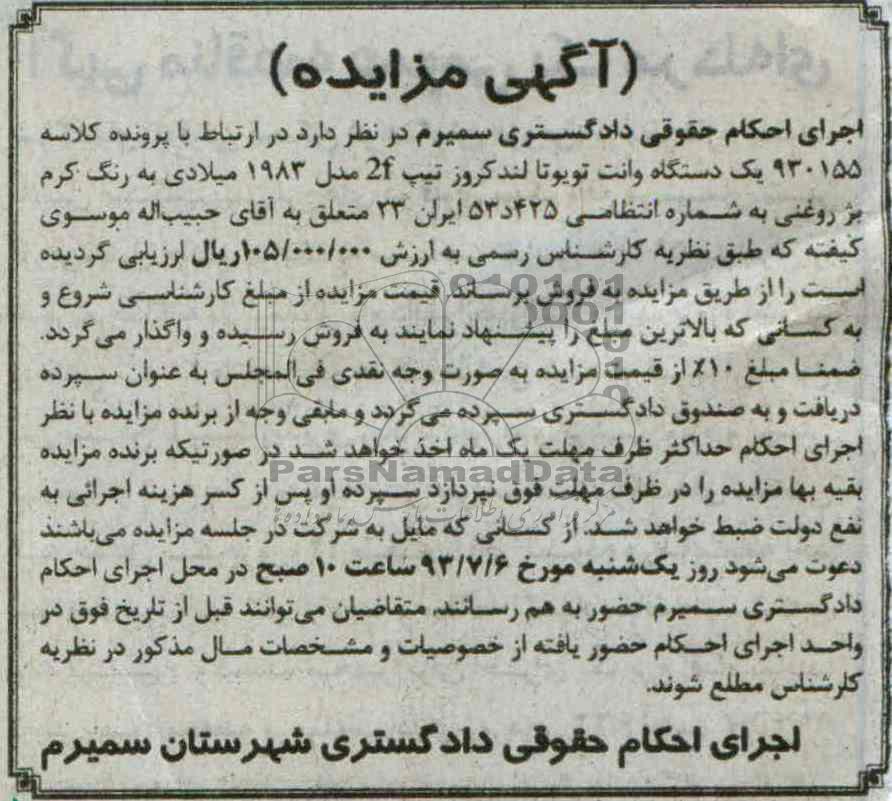 (آگهی مزایده)
اجرای احکام حقوقی دادگستری سمیرم در نظر دارد در ارتباط با پرونده کلاسه
۹۳۰۱۵۵ یک دستگاه وانت تویوتا لندکروز تیپ 2f مدل ۱۹۸۳ میلادی به رنگ کرم
بژ روغنی به شماره انتظامی ۴۲۵د۵۳ ایران ۲۳ متعلق به آقای حبیب‌اله موسوی
کیفته که طبق نظریه کارشناس رسمی به ارزش ۱۰۵/۰۰۰/۰۰۰ریال ارزیابی گردیده
است را از طریق مزایده به فروش برساند. قیمت مزایده از مبلغ کارشناسی شروع و
به کسانی که بالاترین مبلغ را پیشنهاد نمایند به فروش رسیده و واگذار می‌گردد.
ضمنا مبلغ ۱۰٪ از قیمت مزایده به صورت وجه نقدی فی‌المجلس به عنوان سپرده
دریافت و به صندوق دادگستری سپرده می‌گردد و مابقی وجه از برنده مزایده با نظر
اجرای احکام حداکثر ظرف مهلت یک ماه اخذ خواهد شد در صورتیکه برنده مزایده
بقیه بها مزایده را در ظرف مهلت فوق نپردازد سپرده او پس از کسر هزینه اجرائی به
نفع دولت ضبط خواهد شد. از کسانی که مایل به شرکت در جلسه مزایده می‌باشند
دعوت می‌شود روز یک‌شنبه مورخ ۹۳/۷/۶ ساعت ۱۰ صبح در محل اجرای احکام
دادگستری سمیرم حضور به هم رسانند. متقاضیان می‌توانند قبل از تاریخ فوق در
واحد اجرای احکام حضور یافته از خصوصیات و مشخصات مال مذکور در نظریه
کارشناس مطلع شوند.
اجرای احکام حقوقی دادگستری شهرستان سمیرم
ParsNamadData